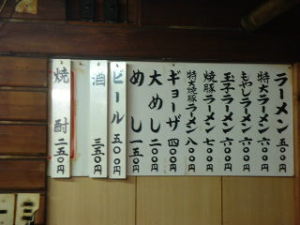 ラーメン 五〇〇円
特大ラーメン 六〇〇円
もやしラーメン 六〇〇円
玉子ラーメン 六〇〇円
焼豚ラーメン 七〇〇円
特大焼豚ラーメン 八〇〇円
ギョーザ 四〇〇円
大めし 二〇〇円
めし 一五〇円
ビール 五〇〇円
酒 三五〇円
焼酎 二五〇円